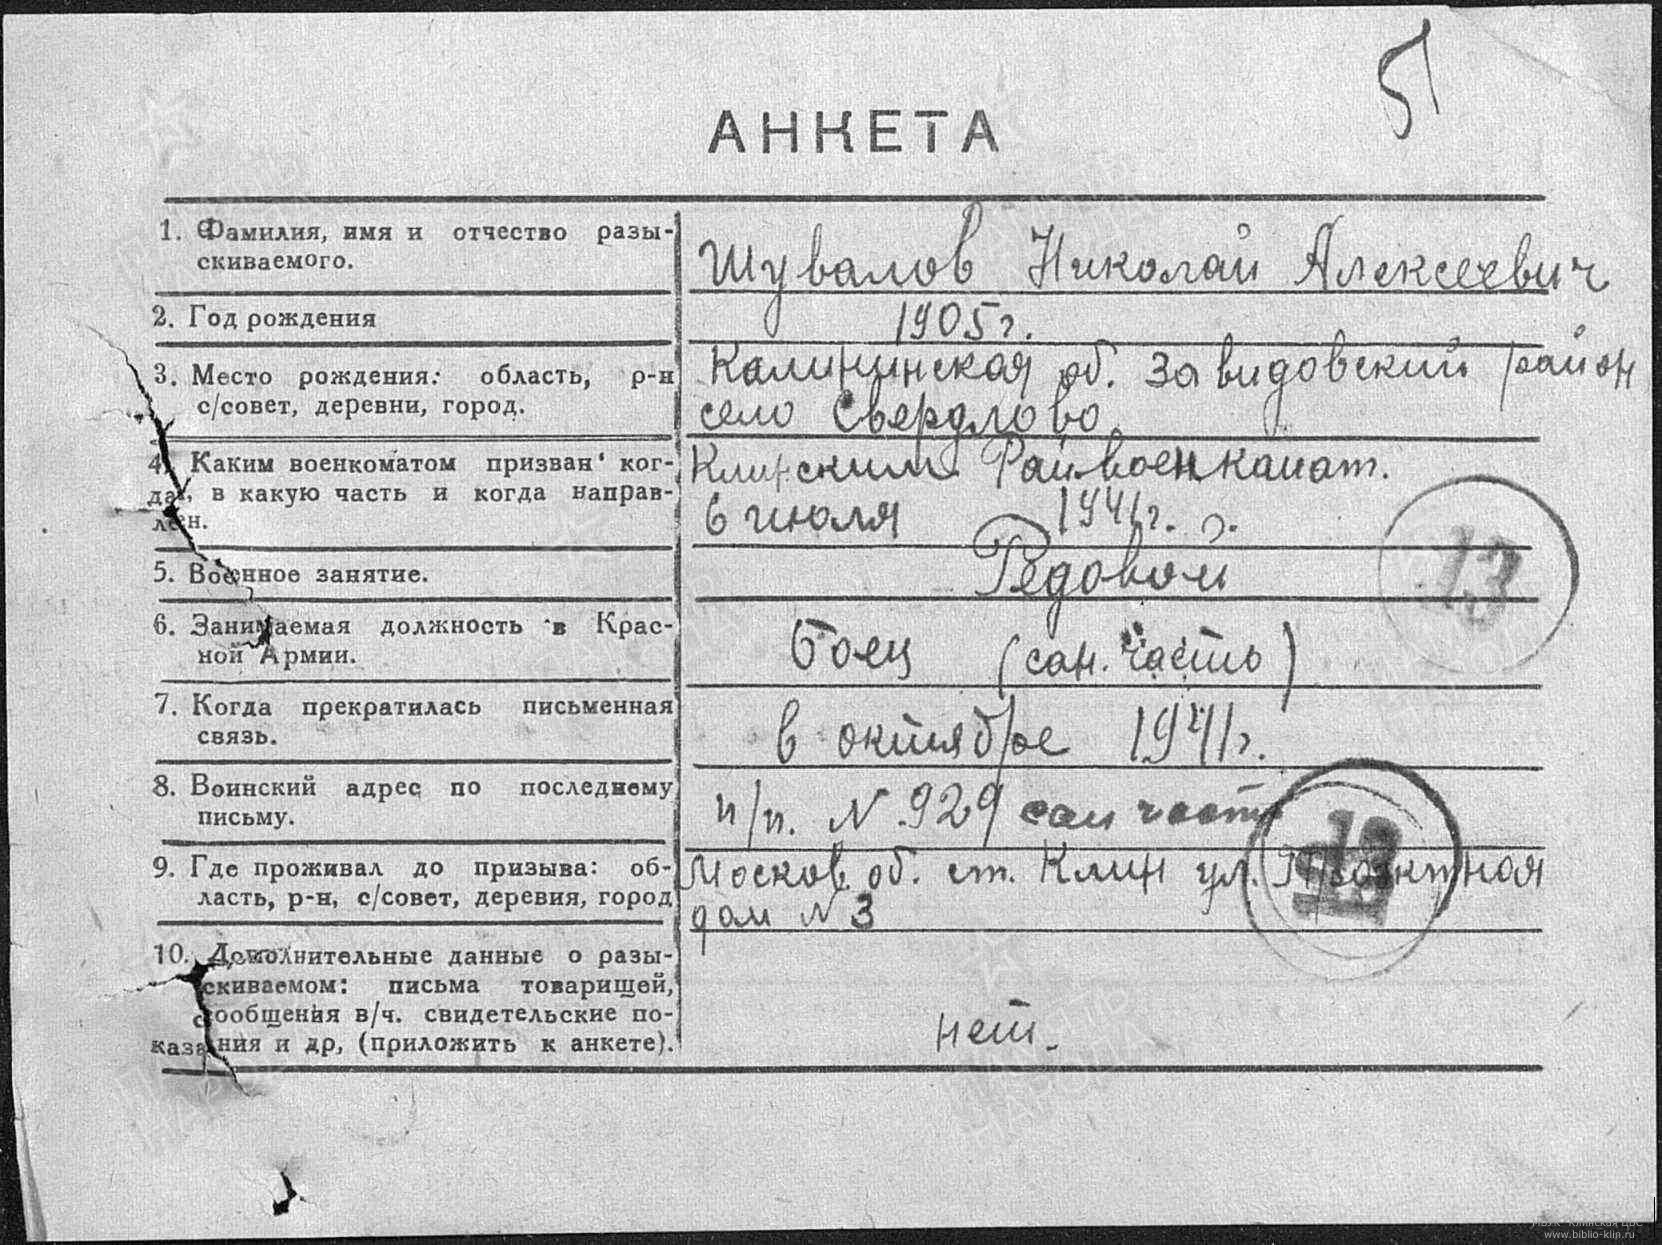 51
АНКЕТА
1. Фамилия, имя и отчество разы-
скиваемого.
Шувалов Николай Алексеевич
2. Год рождения
1905 г.
3. Место рождения: область, р-н
с/совет, деревни, город.
Калининская об. Завидовский район
село Свердлово
4. Каким военкоматом призван ког-
да, в какую часть и когда направ-
лен.
Клинским Райвоенкамат.
6 июля 1941 г.
5. Военное занятие.
Редовой
6. Занимаемая должность в Крас-
ной Армии.
боец (сан. часть)
7. Когда прекратилась письменная
связь.
в октябре 1941 г.
8. Воинский адрес по последнему
письму.
п/п. N 929 сан часть
9. Где проживал до призыва: об-
ласть, р-н, с/совет, деревня, город
Москов. об. ст. Клин ул.
дом N 3
10. Дополнительные данные о разы-
скиваемом: письма товарищей,
сообщения в/ч. свидетельские по-
казания и др, (приложить к анкете).
нет.
13
13
www.biblio-klin.ru